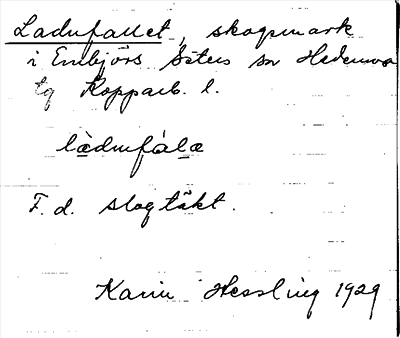 Ladufallet, skogsmark
i Enbjörs Säters sn Hedemora
tg Kopparb. l.
làdufála
F. d. slogtäkt.
Karin Hessling 1929